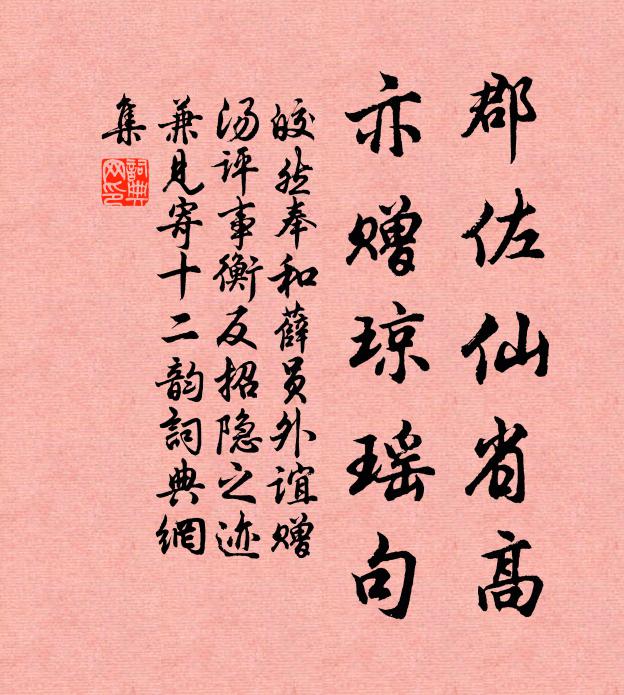 郡佐仙省高
亦赠琼瑶句
皎然奉和薛员外谊赠
汤评事衡反招隐之迹
兼见寄十二韵詞典網
集
詞典網印